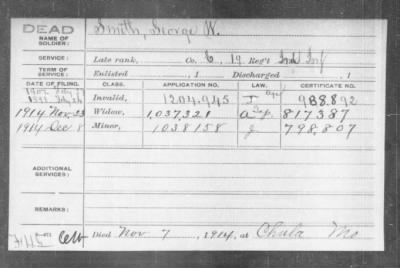 DEAD
NAME OF SOLDIER: Smith, George W.
SERVICE: Late rank, Co. C, 19 Reg't Ind Inf
TERM OF SERVICE: Enlisted , 1 Discharged , 1
DATE OF FILING. CLASS. APPLICATION NO. LAW. CERTIFICATE NO.
Invalid, 1204,945 988,892
1914 Nov. 23 Widow, 1,037,321 817387
1914 Dec 8 Minor, 1038158 798,807
ADDITIONAL SERVICES:
REMARKS:
Died Nov 7, 1914, at Chula Mo